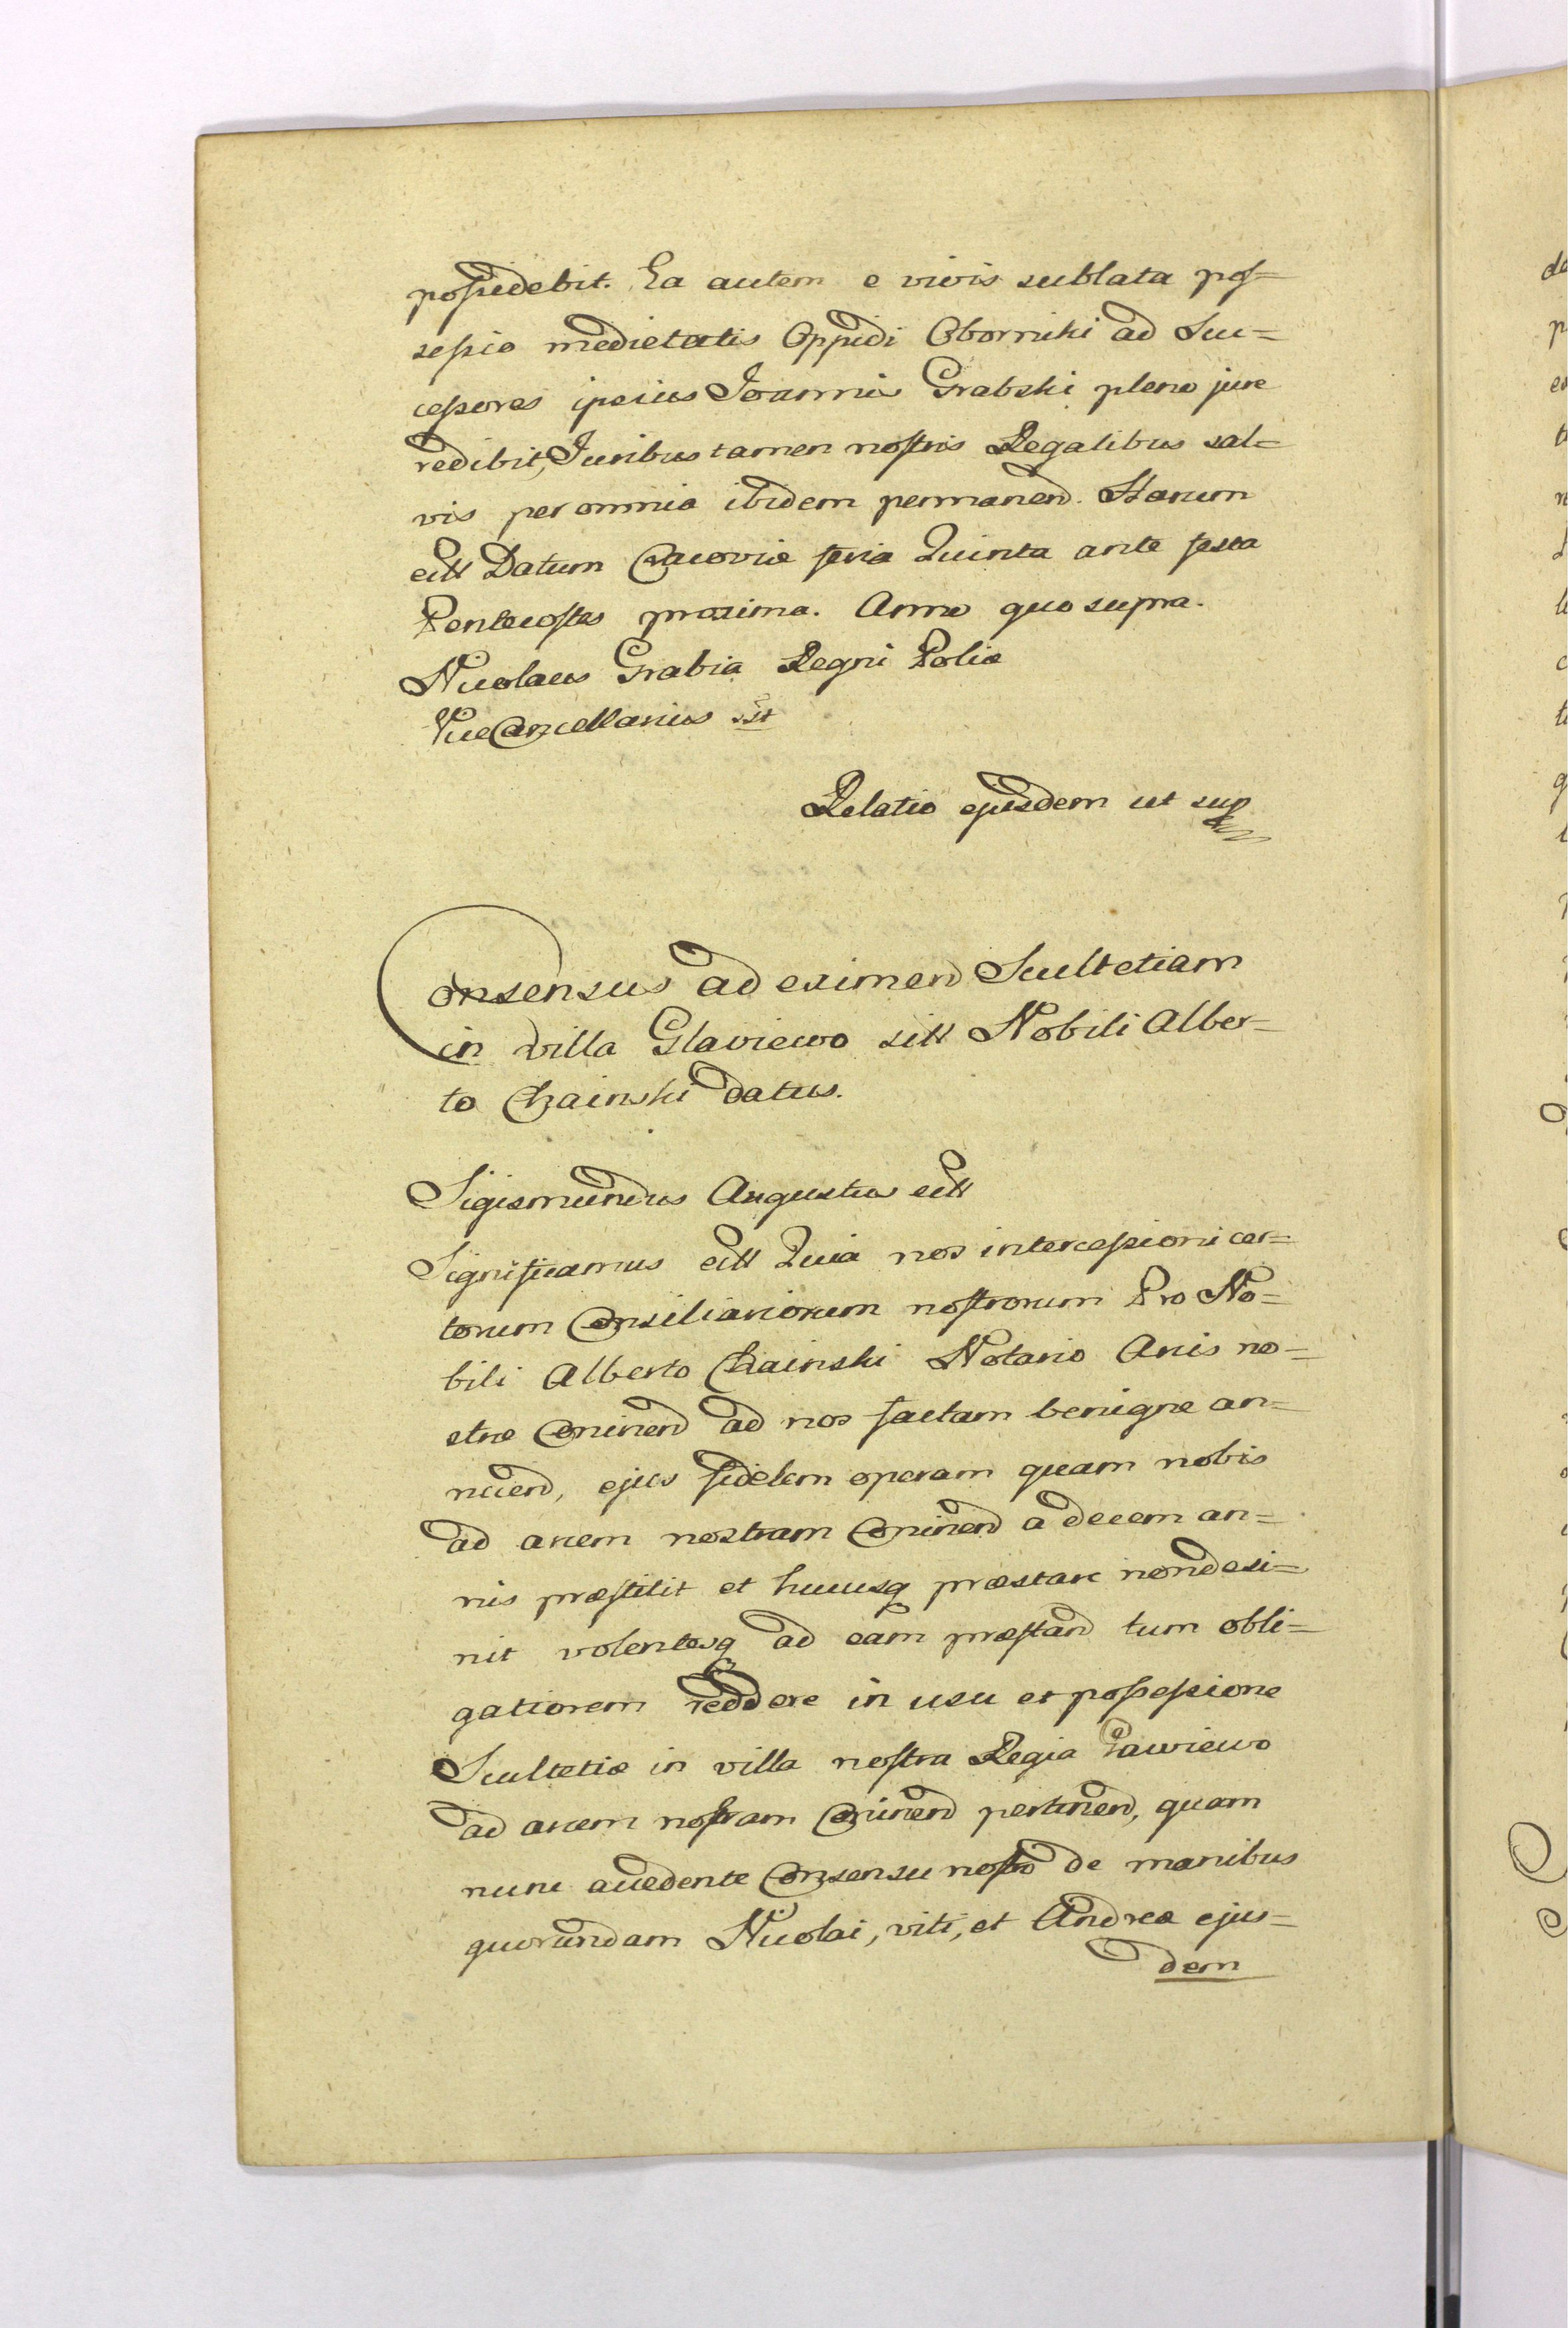 possidebit. Ea autem e vivis sublata pos=
sessio medietatis Oppidi Oborniki ad Suc=
cessores ipsius Joannis Grabski pleno jure
redibit, Juribus tamen nostris Regalibus sal=
vis per omnia ibidem permanend. Harum
ett Datum Cracoviæ feria Quinta ante festa
Pentecostes proxima. Anno quo supra.
Nicolaus Grabia Regni Poliæ
ViceCancellarius sst
Relatio ejusdem ut sup
Consensus ad eximend Scultetiam
in villa Glaviewo sitt Nobili Alber=
to Chainski datus.
Sigismundus Augustus ett
Significamus ett Quia nos intercessioni cer=
torum Consiliariorum nostrorum Pro No=
bili Alberto Chainski Notario Arcis no=
stræ Coninen ad nos factam benigne an=
nuend, ejus fidelem operam quam nobis
ad arcem nostram Coninen a decem an=
nis præstitit et hucusq præstare non desi=
nit volentesq ad eam præstand tum obli=
gatiorem reddere in usu et possessione
Scultetiæ in villa nostra Regia Gawiewo
ad arcem nostram Coninen pertinen, quam
nunc accedente Consensu nostro de manibus
quorundam Nicolai, viti, et Andreæ ejus=
dem